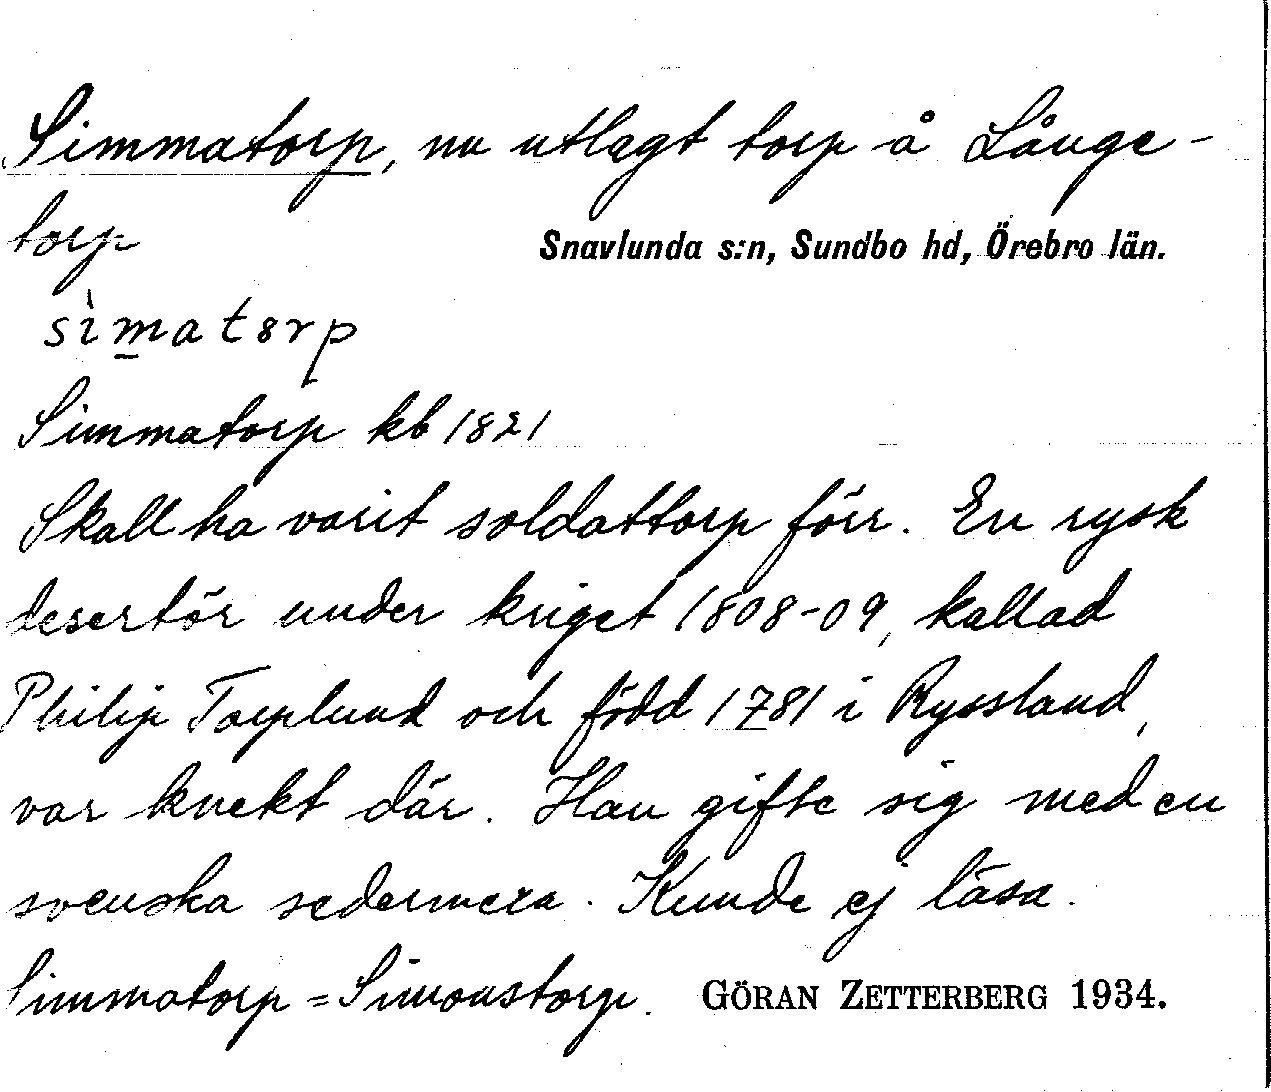 Simmatorp, nu utlagt torp å Långe-
torp
Snavlunda s:n, Sundbo hd, Örebro län.
sìm̲atɛrp
Simmatorp kb 1821
Skall ha varit soldattorp förr. En rysk
desertör under kriget 1808-09, kallad
Philip Torplund och född 1781 i Ryssland,
var knekt där. Han gifte sig med en
svenska sedermera. Kunde ej läsa.
Simmatorp = Simonstorp.
GÖRAN ZETTERBERG 1934.